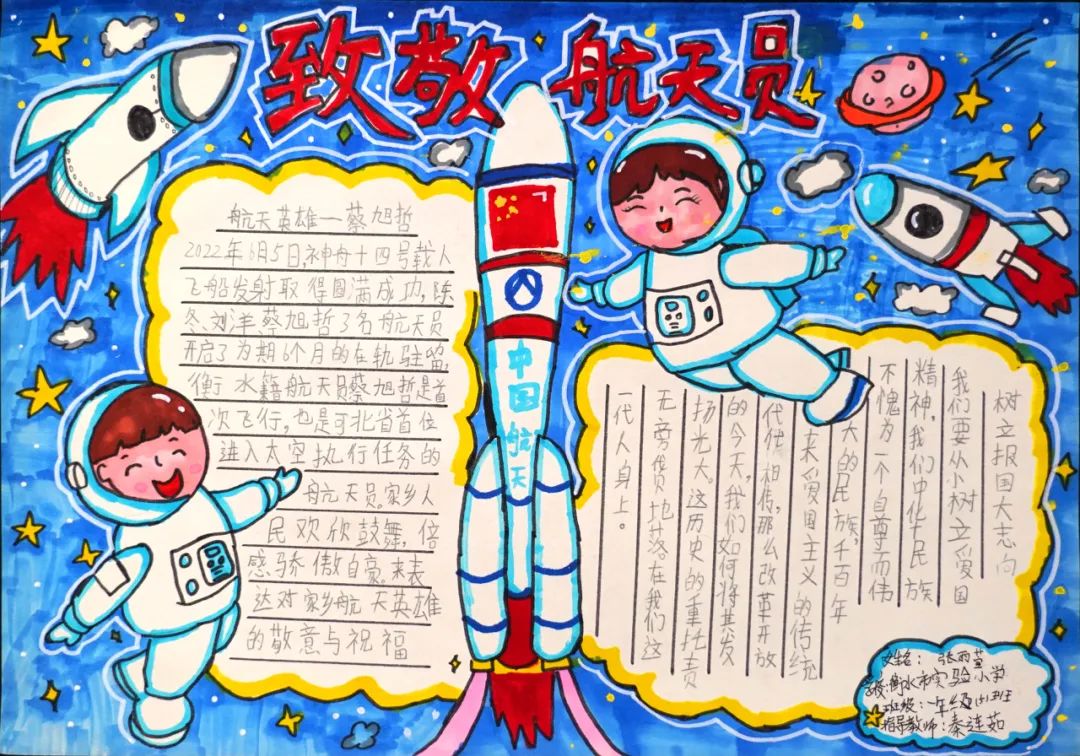 致敬 航天员
航天英雄一蔡旭哲
2022年6月5日,神舟十四号载人
飞船发射取得圆满成功,陈
冬刘洋蔡旭哲3名航天员
开启了为期6个月的在轨驻留,
衡水籍航天员蔡旭哲是首
次飞行,也是可北省首位
进入太空执行任务的
航天员.家乡人
民欢欣鼓舞,倍
感骄傲自豪.来表
达对家乡航天英雄
的敬意与祝福
中国航天
树立报国大志向
我们要从小树立爱国
精神,我们中化民族
不愧为一个自尊而伟
大的民族,千百年
来爱国主义的传统
代代相传,那么改革开放
的今天,我们如何将其发
扬光大。这历史的重托责
无旁贷地落在我们这
一代人身上。
姓名:张雨萱
学校:衡水市实验小学
班级:一年级(4)班
指导教师:秦连茹